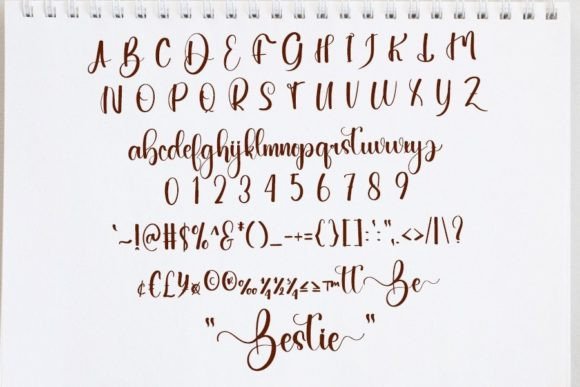 A B C D E F G H I J K L M
N O P Q R S T U V W X Y Z
abcdefghijklmnopqrstuvwxyz
0 1 2 3 4 5 6 7 8 9
`~!@#$%^&*()_-+={}[]:;'",.<>/|\?
¢€£¥¤©®‰¼½¾≤≥™tt Be
"Bestie"